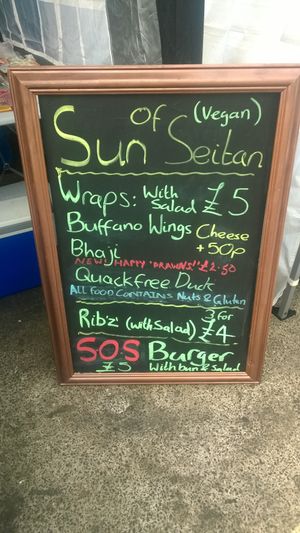 Sun Of Seitan (Vegan)
Wraps: With Salad £5
Buffano Wings Cheese +50p
Bhaji
NEW! HAPPY 'PRAWNS' £2.50
Quackfree Duck
ALL FOOD CONTAINS Nuts & Gluten
Rib'z' (with Salad) 3 for £4
S.O.S Burger
£5 With bun & Salad